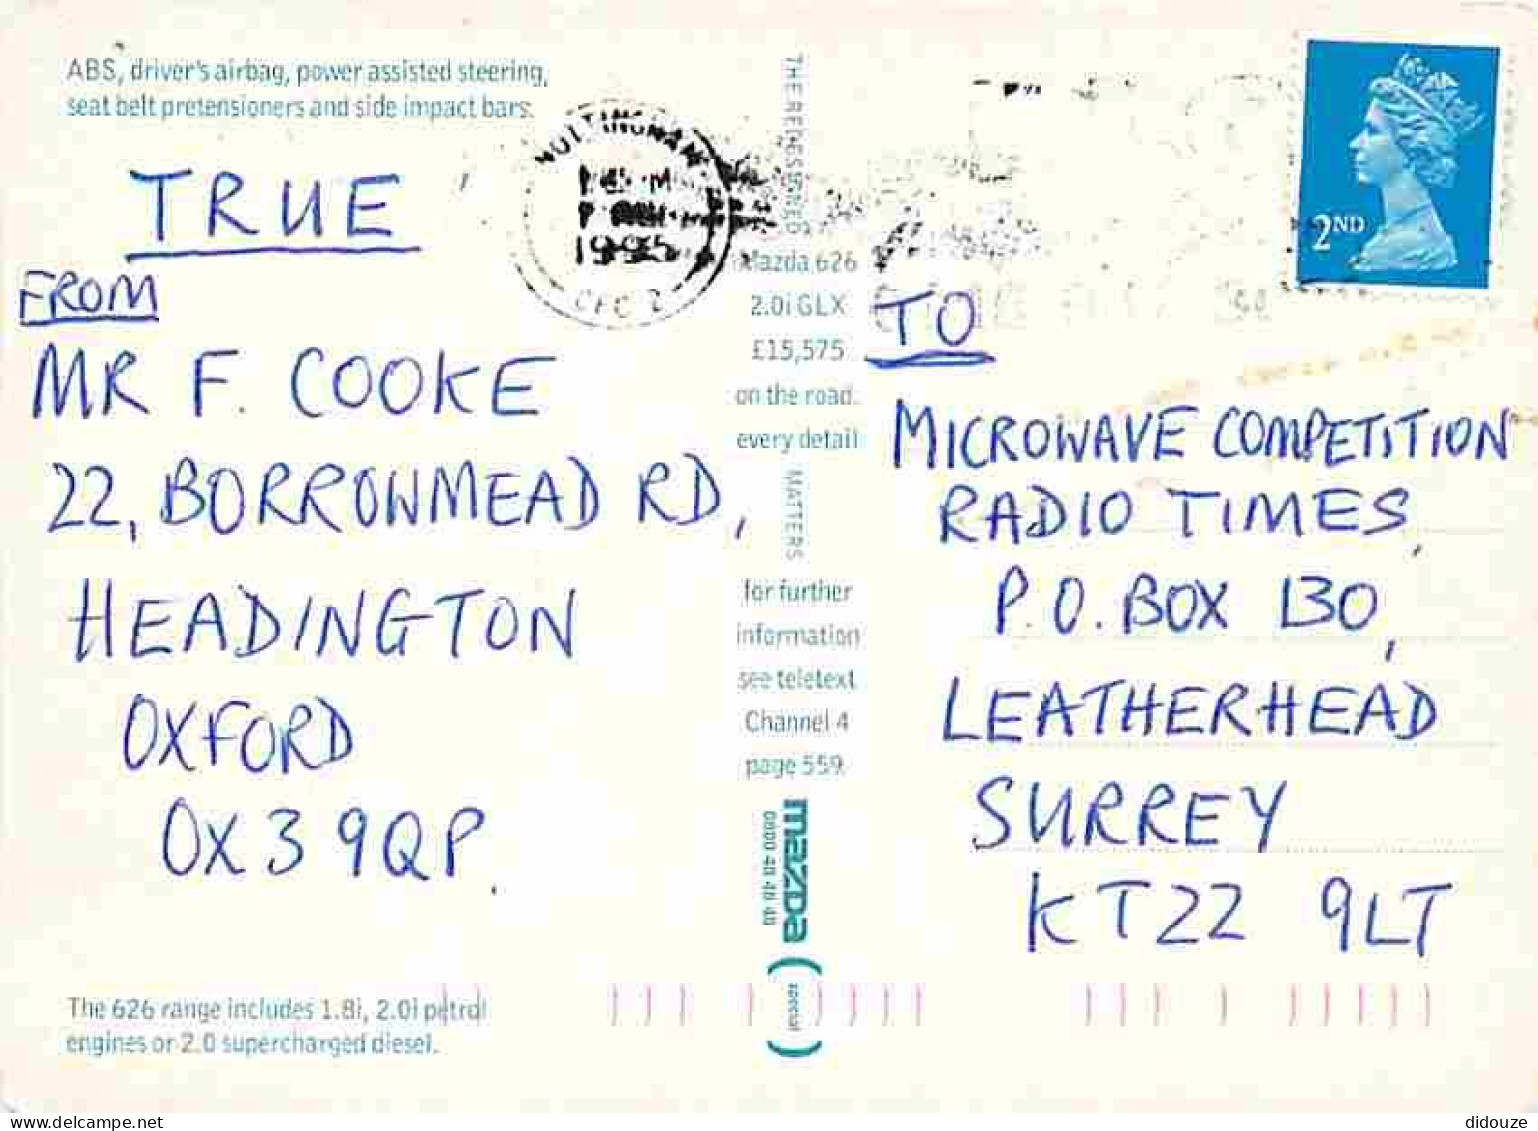 ABS, driver's airbag, power assisted steering,
seat belt pretensioners and side impact bars.
TRUE
FROM
MR F. COOKE
22, BORROWMEAD RD,
HEADINGTON
OXFORD
OX3 9QP.
The 626 range includes 1.8i, 2.0i petrol
engines or 2.0 supercharged diesel.
NOTTINGHAM
1995
CFC 2
THE REDESIGNED
Mazda 626
2.0i GLX
£15,575
on the road.
every detail
MATTERS
for further
information
see teletext
Channel 4
page 559.
mazda
0800 48 48 48
(special)
2ND
TO
MICROWAVE COMPETITION
RADIO TIMES,
P.O. BOX 130,
LEATHERHEAD
SURREY
KT22 9LT
https://www.delcampe.net
didouze